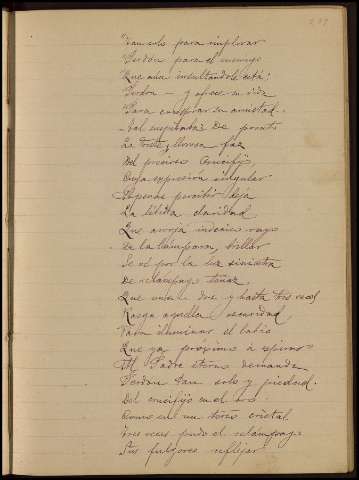 Tan solo para implorar
Perdón para el enemigo
Que aún insultándole está:
Perdon – y ofrece su vida
Para conseguir su amistad.
De pronto
La triste, llorosa faz
Del precioso crucifijo,
Cuya expresión singular
Apenas percibir deja
La tibia claridad
Que arroja indeciso rayo
De la lámpara, brillar
Se vé por la luz siniestra
De relámpago tenaz,
Que una i dos y hasta tres veces
Rasga aquella oscuridad,
Para iluminar el labio
Que ya próximo á espirar
Al Padre eterno demanda
Perdon tan solo y piedad.
Del crucifijo en el
Como en un terso cristal
Tres veces pudo el relámpago
Sus fulgores reflejar